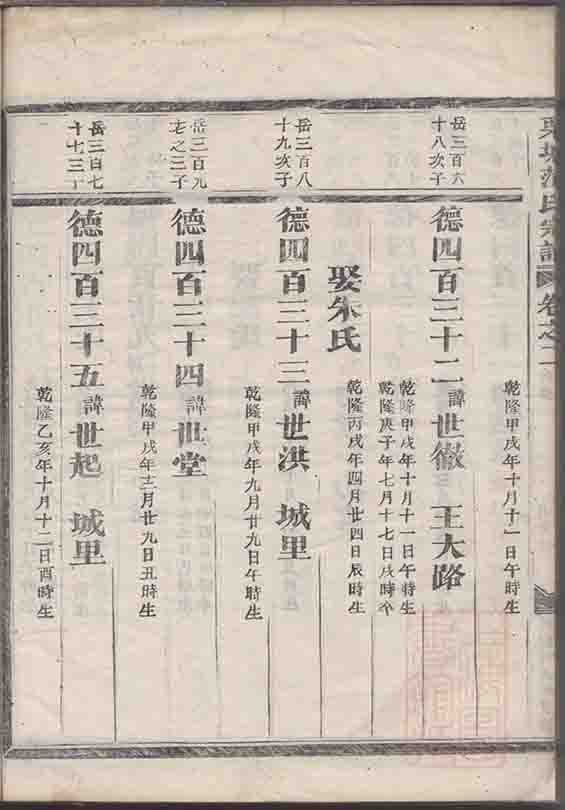 氏宗譜 卷之二
乾隆甲戌年十月十一日午時生
岳三百六
十八次子
德四百三十二 諱世徹 王大路
乾隆甲戌年十月十一日午時生
乾隆庚子年七月十七日戌時卒
娶朱氏
乾隆丙戌年四月廿四日辰時生
岳三百八
十九次子
德四百三十三 諱世洪 城里
乾隆甲戌年九月廿九日午時生
岳三百九
之三子
德四百三十四 諱世堂
乾隆甲戌年十二月廿九日丑時生
岳三百七
十七三子
德四百三十五 諱世起 城里
乾隆乙亥年十月十二日酉時生